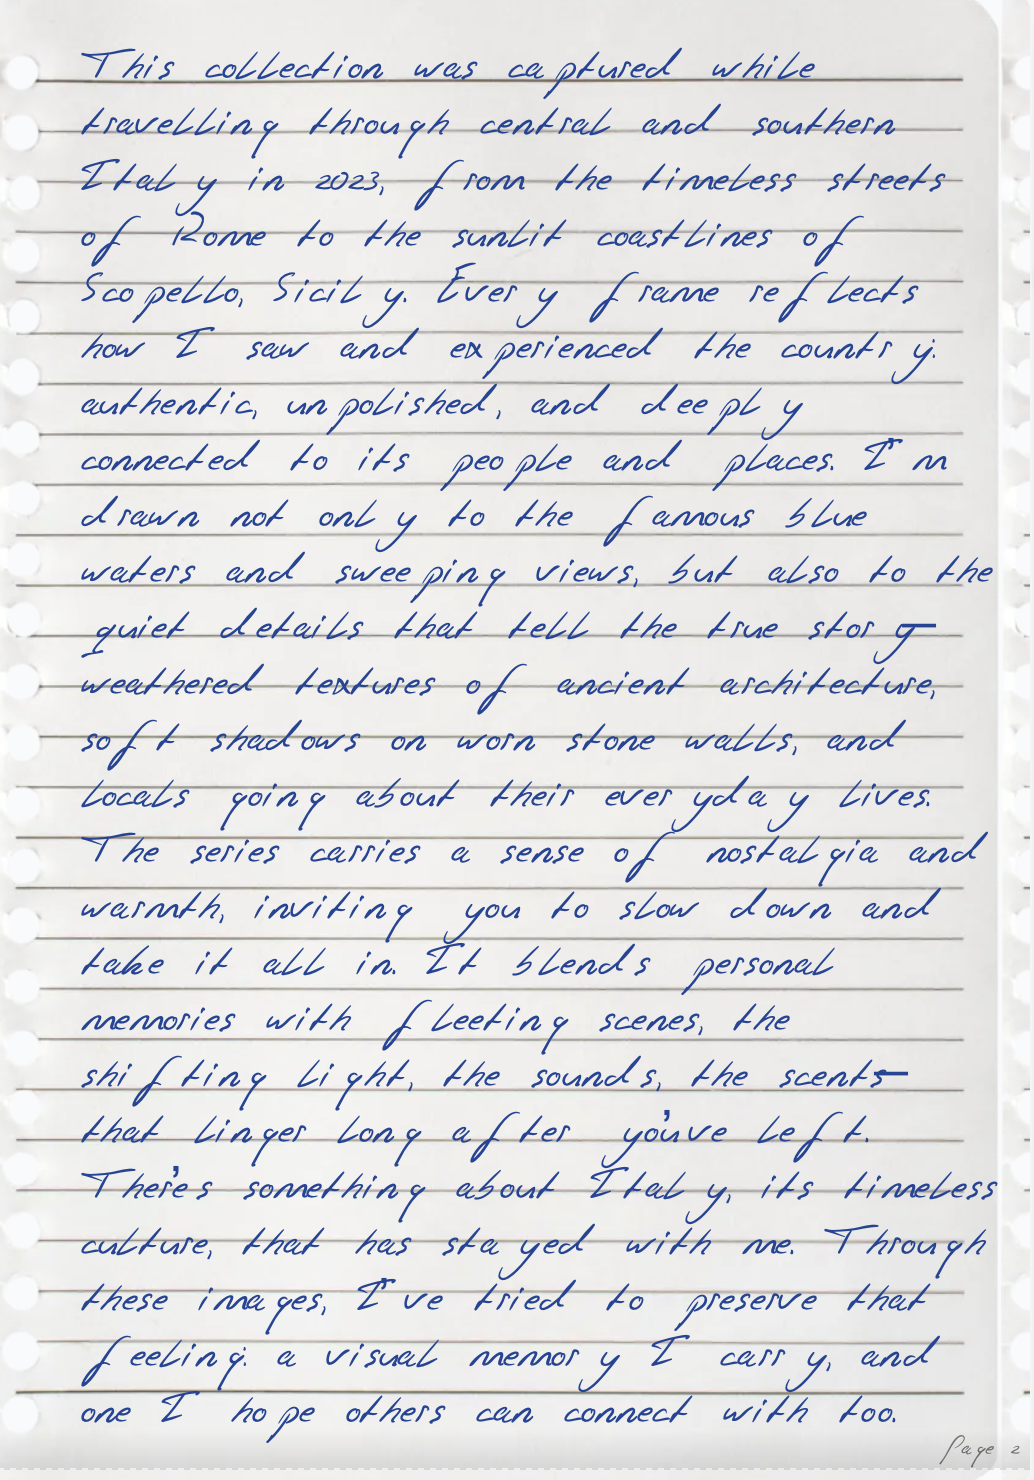 This collection was captured while
travelling through central and southern
Italy in 2023, from the timeless streets
of Rome to the sunlit coastlines of
Scopello, Sicily. Every frame reflects
how I saw and experienced the country:
authentic, unpolished, and deeply
connected to its people and places. I'm
drawn not only to the famous blue
waters and sweeping views, but also to the
quiet details that tell the true story—
weathered textures of ancient architecture,
soft shadows on worn stone walls, and
locals going about their everyday lives.
The series carries a sense of nostalgia and
warmth, inviting you to slow down and
take it all in. It blends personal
memories with fleeting scenes, the
shifting light, the sounds, the scents—
that linger long after you've left.
There's something about Italy, its timeless
culture, that has stayed with me. Through
these images, I've tried to preserve that
feeling: a visual memory I carry, and
one I hope others can connect with too.
Page 2